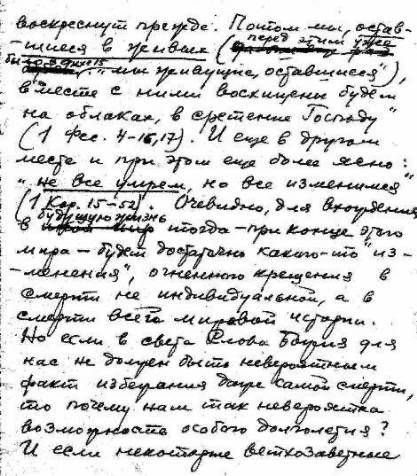 воскреснут прежде. Потом мы, остав-
шиеся в живых (перед этим уже
было в стихе 15 „мы живущие, оставшиеся"),
вместе с ними восхищены будем
на облаках, в сретение Господу"
(1 Фес. 4-16,17). И еще в другом
месте и при этом еще более ясно:
„не все умрем, но все изменимся
(1 Кор. 15-52). Очевидно, для вхождения
в будущую жизнь тогда - при конце этого
мира - будет достаточно какого-то „из-
-менения", огненного крещения в
смерти не индивидуальной, а в
смерти всей мировой истории.
Но если в свете Слова Божия для
нас не должен быть невероятным
факт избежания даже самой смерти,
то почему нам так невероятна
возможность особого долголетия?
И если некоторые ветхозаветные